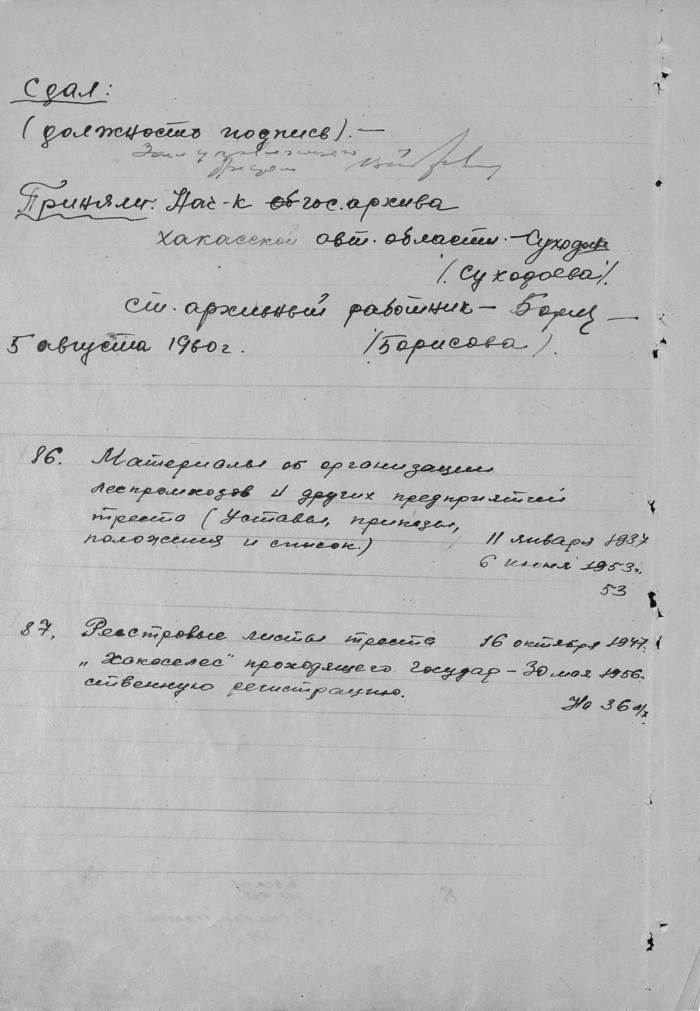 Сдал:
(должность подпись). —
Зам управляющего
Приняли: Нач-к обгос. архива
хакасской авт. области. — Суходо
(Суходоева).
ст. архивный работник — Бори —
5 августа 1960 г. (Борисова).
86. Материалы об организации
леспромхозов и других предприятий
треста (Уставы, приказы,
положения и список.) 11 января 1937
6 июня 1953г.
53
87. Реестровые листы треста 16 октября 1947.
„Хакаслес" проходящего государ – 30 мая 1956.
ственную регистрацию.
На 36 л/х